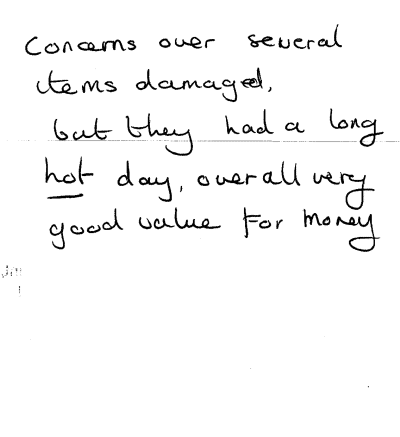 Concerns over several
items damaged,
but they had a long
hot day, overall very
good value for money